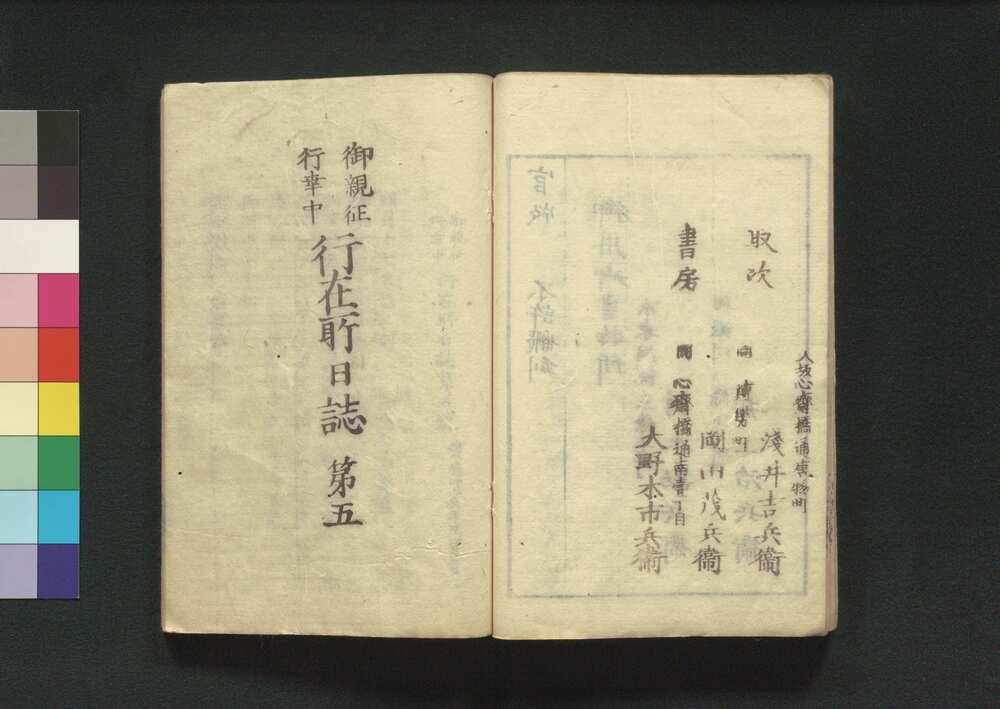 取次
書房
大坂心齋橋通唐物町
淺井吉兵衞
同 博勞町
岡田茂兵衞
同 心齋橋通南壹丁目
大野木市兵衞
御親征
行幸中
行在所日誌 第五
官版 不許飜刻